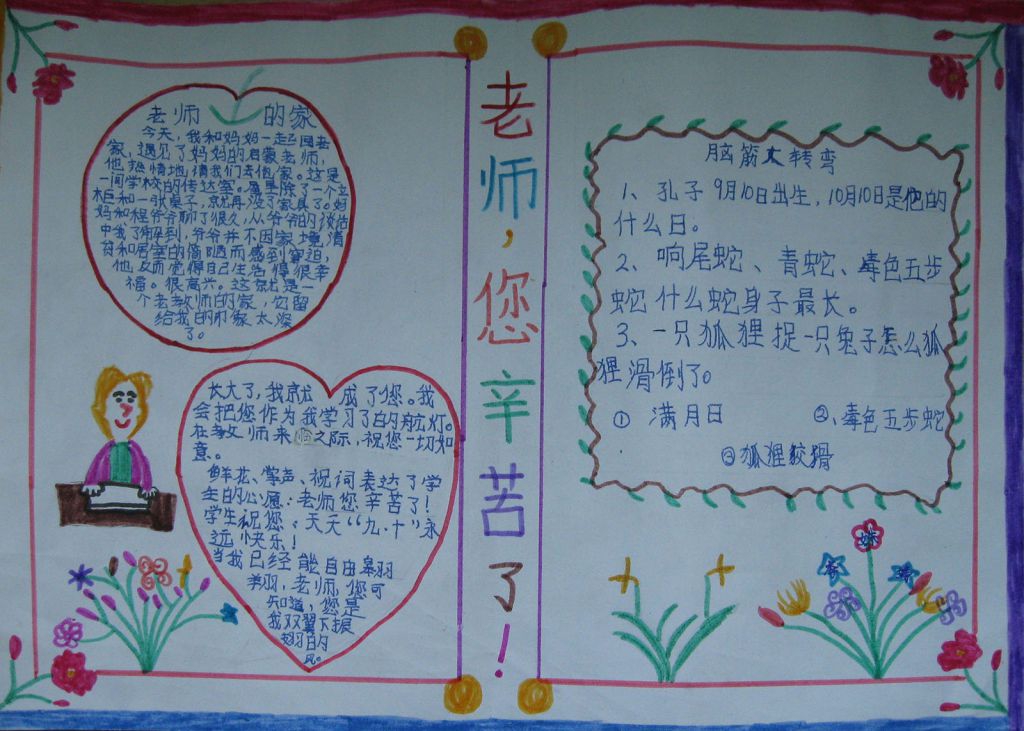 老师的家
今天,我和妈妈一起回老
家,遇见了妈妈的启蒙老师,
他热情地请我们去他家。这是
一间学校的传达室。屋里除了一个立
柜和一张桌子,就再没了家具了。妈
妈和程爷爷聊了很久,从爷爷的谈话
中我了解到,爷爷并不因家境清
贫和居室的简陋而感到窘迫,
他反而觉得自己生活得很幸
福。很高兴。这就是一
个老教师的家,它留
给我的印象太深
了。
长大了,我就成了您。我
会把您作为我学习了的航灯。
在教师来临之际,祝您一切如
意。
鲜花、掌声、祝词表达了学
生的心愿:老师您辛苦了!
学生祝您:天天“九·十”永
远快乐!
当我已经能自由
羽,老师,您可
知道,您是
我双翼下振
翅的
风。
老师,您辛苦了!
脑筋大转弯
1、孔子9月10日出生,10月10日是他的
什么日。
2、响尾蛇、青蛇、毒色五步
蛇什么蛇身子最长。
3、一只狐狸捉一只兔子怎么狐
狸滑倒了。
① 满月日 ②、毒色五步蛇
③狐狸狡猾